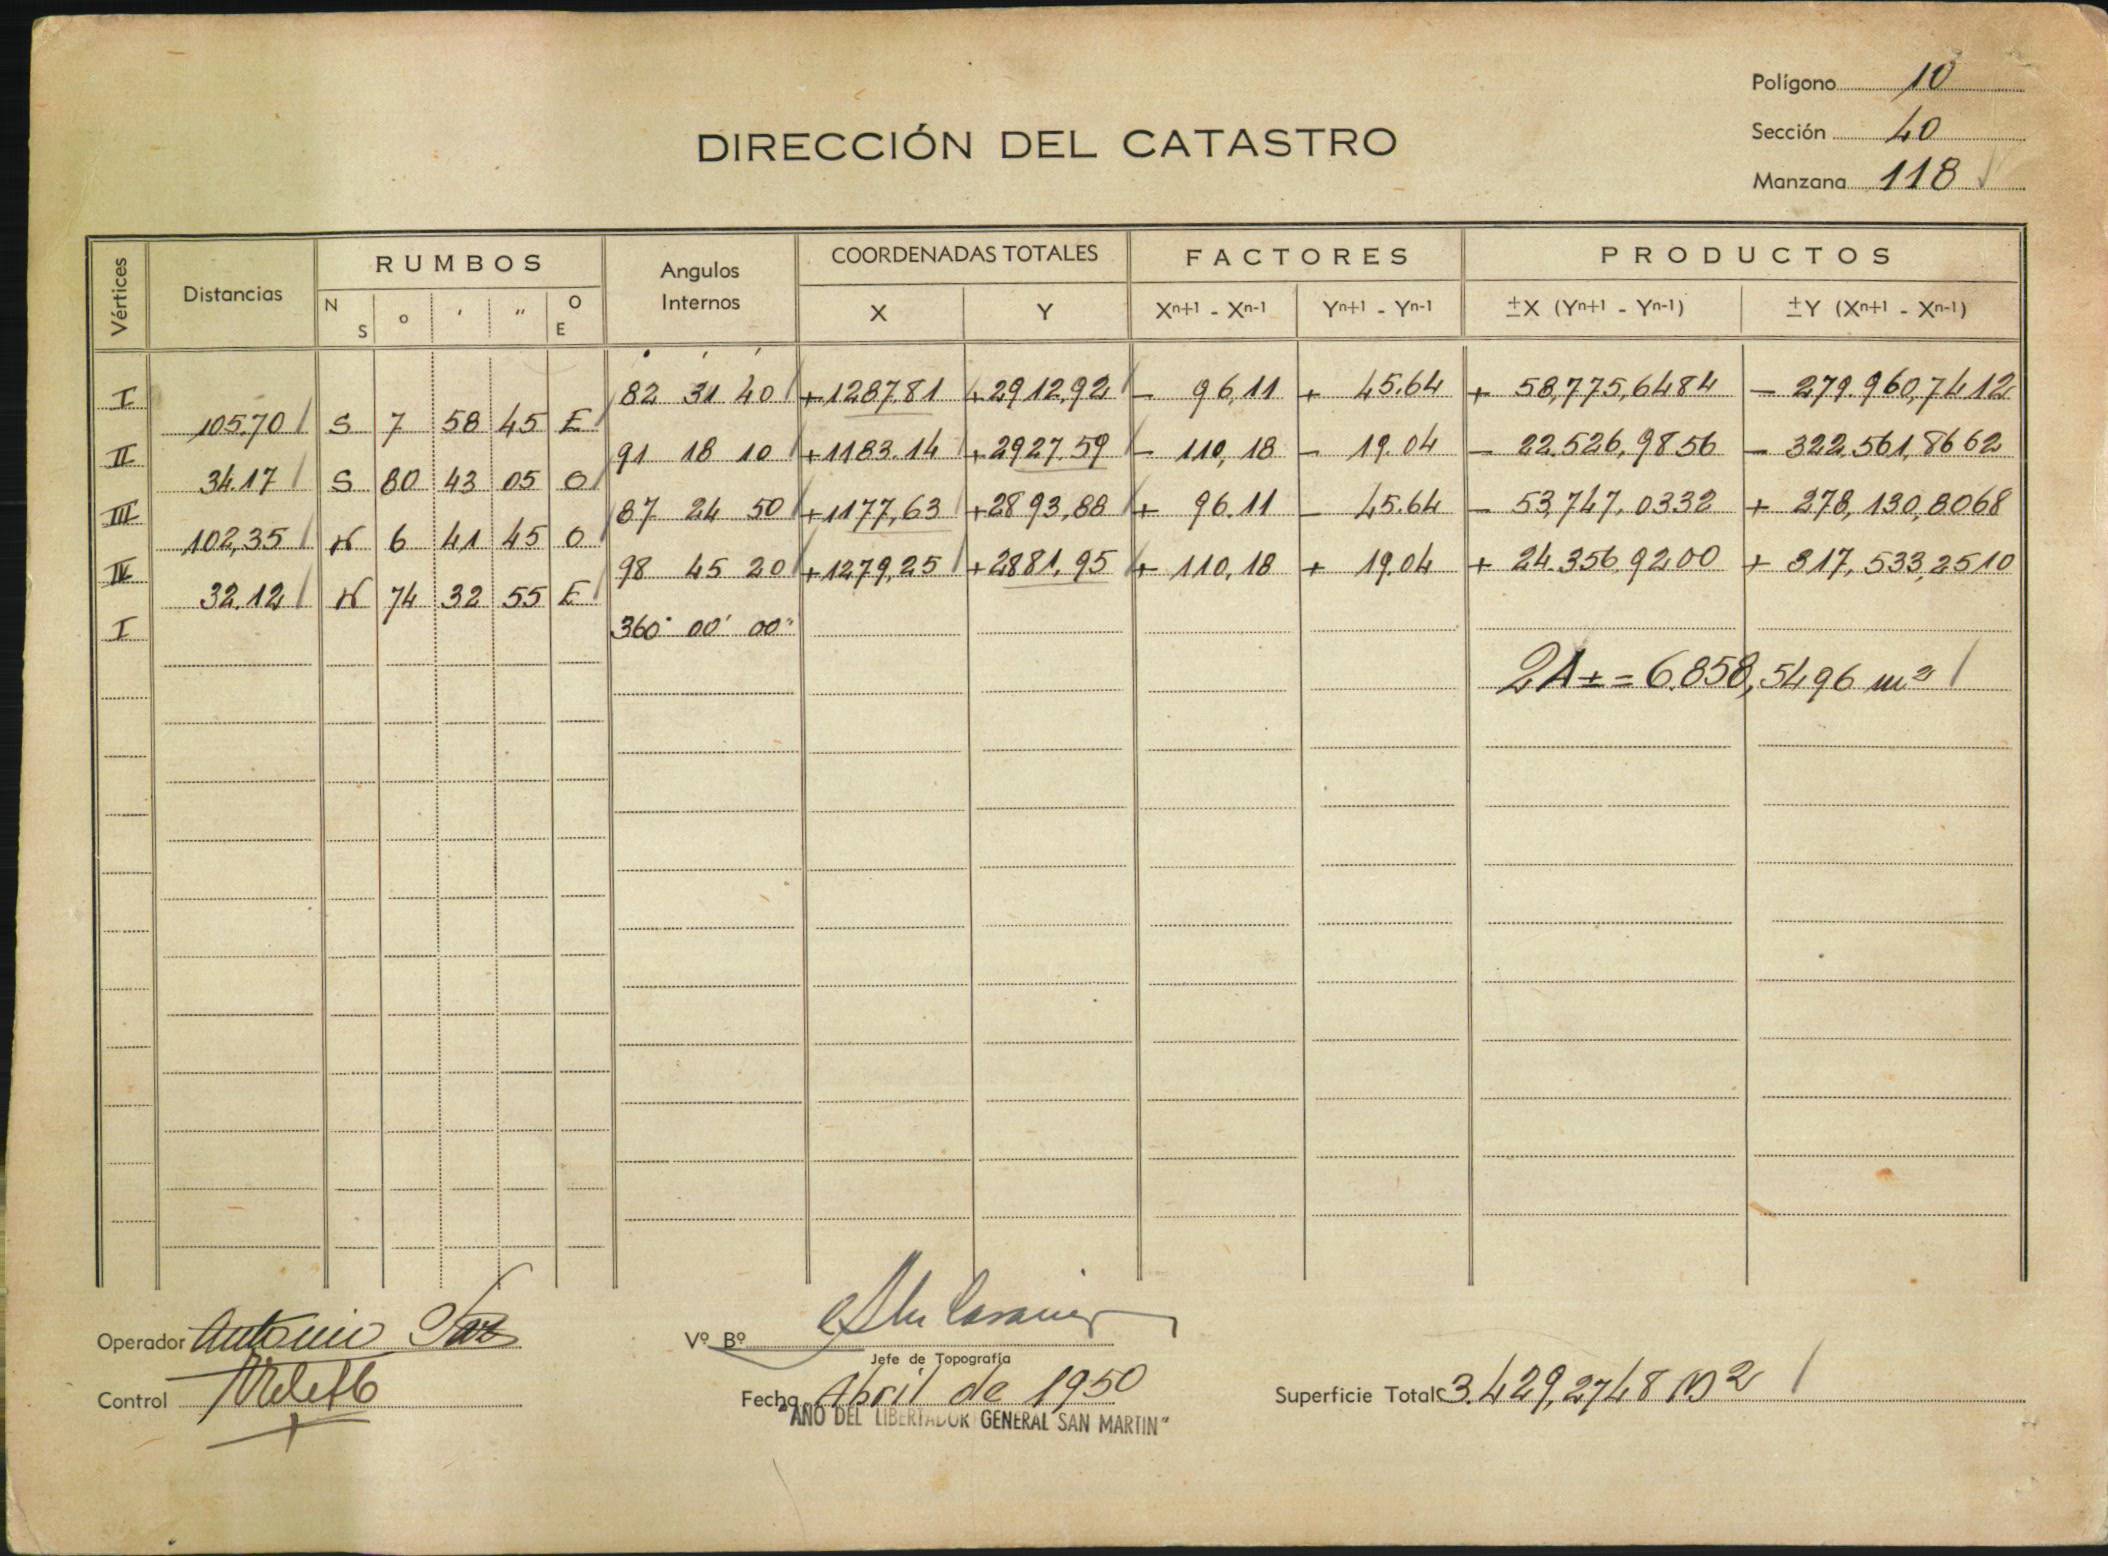 Polígono 10
Sección 40
DIRECCIÓN DEL CATASTRO
Manzana 118
Vértices Distancias RUMBOS Angulos Internos COORDENADAS TOTALES FACTORES PRODUCTOS
N S o ' " O E X Y Xn+1 - Xn-1 Yn+1 - Yn-1 ±X (Yn+1 - Yn-1) ±Y (Xn+1 - Xn-1)
I 82 31 40 +1287.81 +2912,92 - 96,11 + 45.64 + 58,775,6484 - 279.960,7412
105.70 S 7 58 45 E
II 91 18 10 +1183.14 +2927.59 - 110,18 - 19.04 - 22.526,9856 - 322.561,8662
34.17 S 80 43 05 O
III 87 24 50 +1177,63 +2893,88 + 96.11 - 45.64 - 53,747,0332 + 278,130,8068
102,35 N 6 41 45 O
IV 98 45 20 +1279,25 +2881,95 + 110,18 + 19.04 + 24.356,9200 + 317,533,2510
32.12 N 74 32 55 E
I 360° 00' 00"
2A± = 6.858,5496 m²
Operador Antonio
Vº Bº
Jefe de Topografía
Control
Fecha Abril de 1950
Superficie Total 3.429,2748 m²
"AÑO DEL LIBERTADOR GENERAL SAN MARTIN"